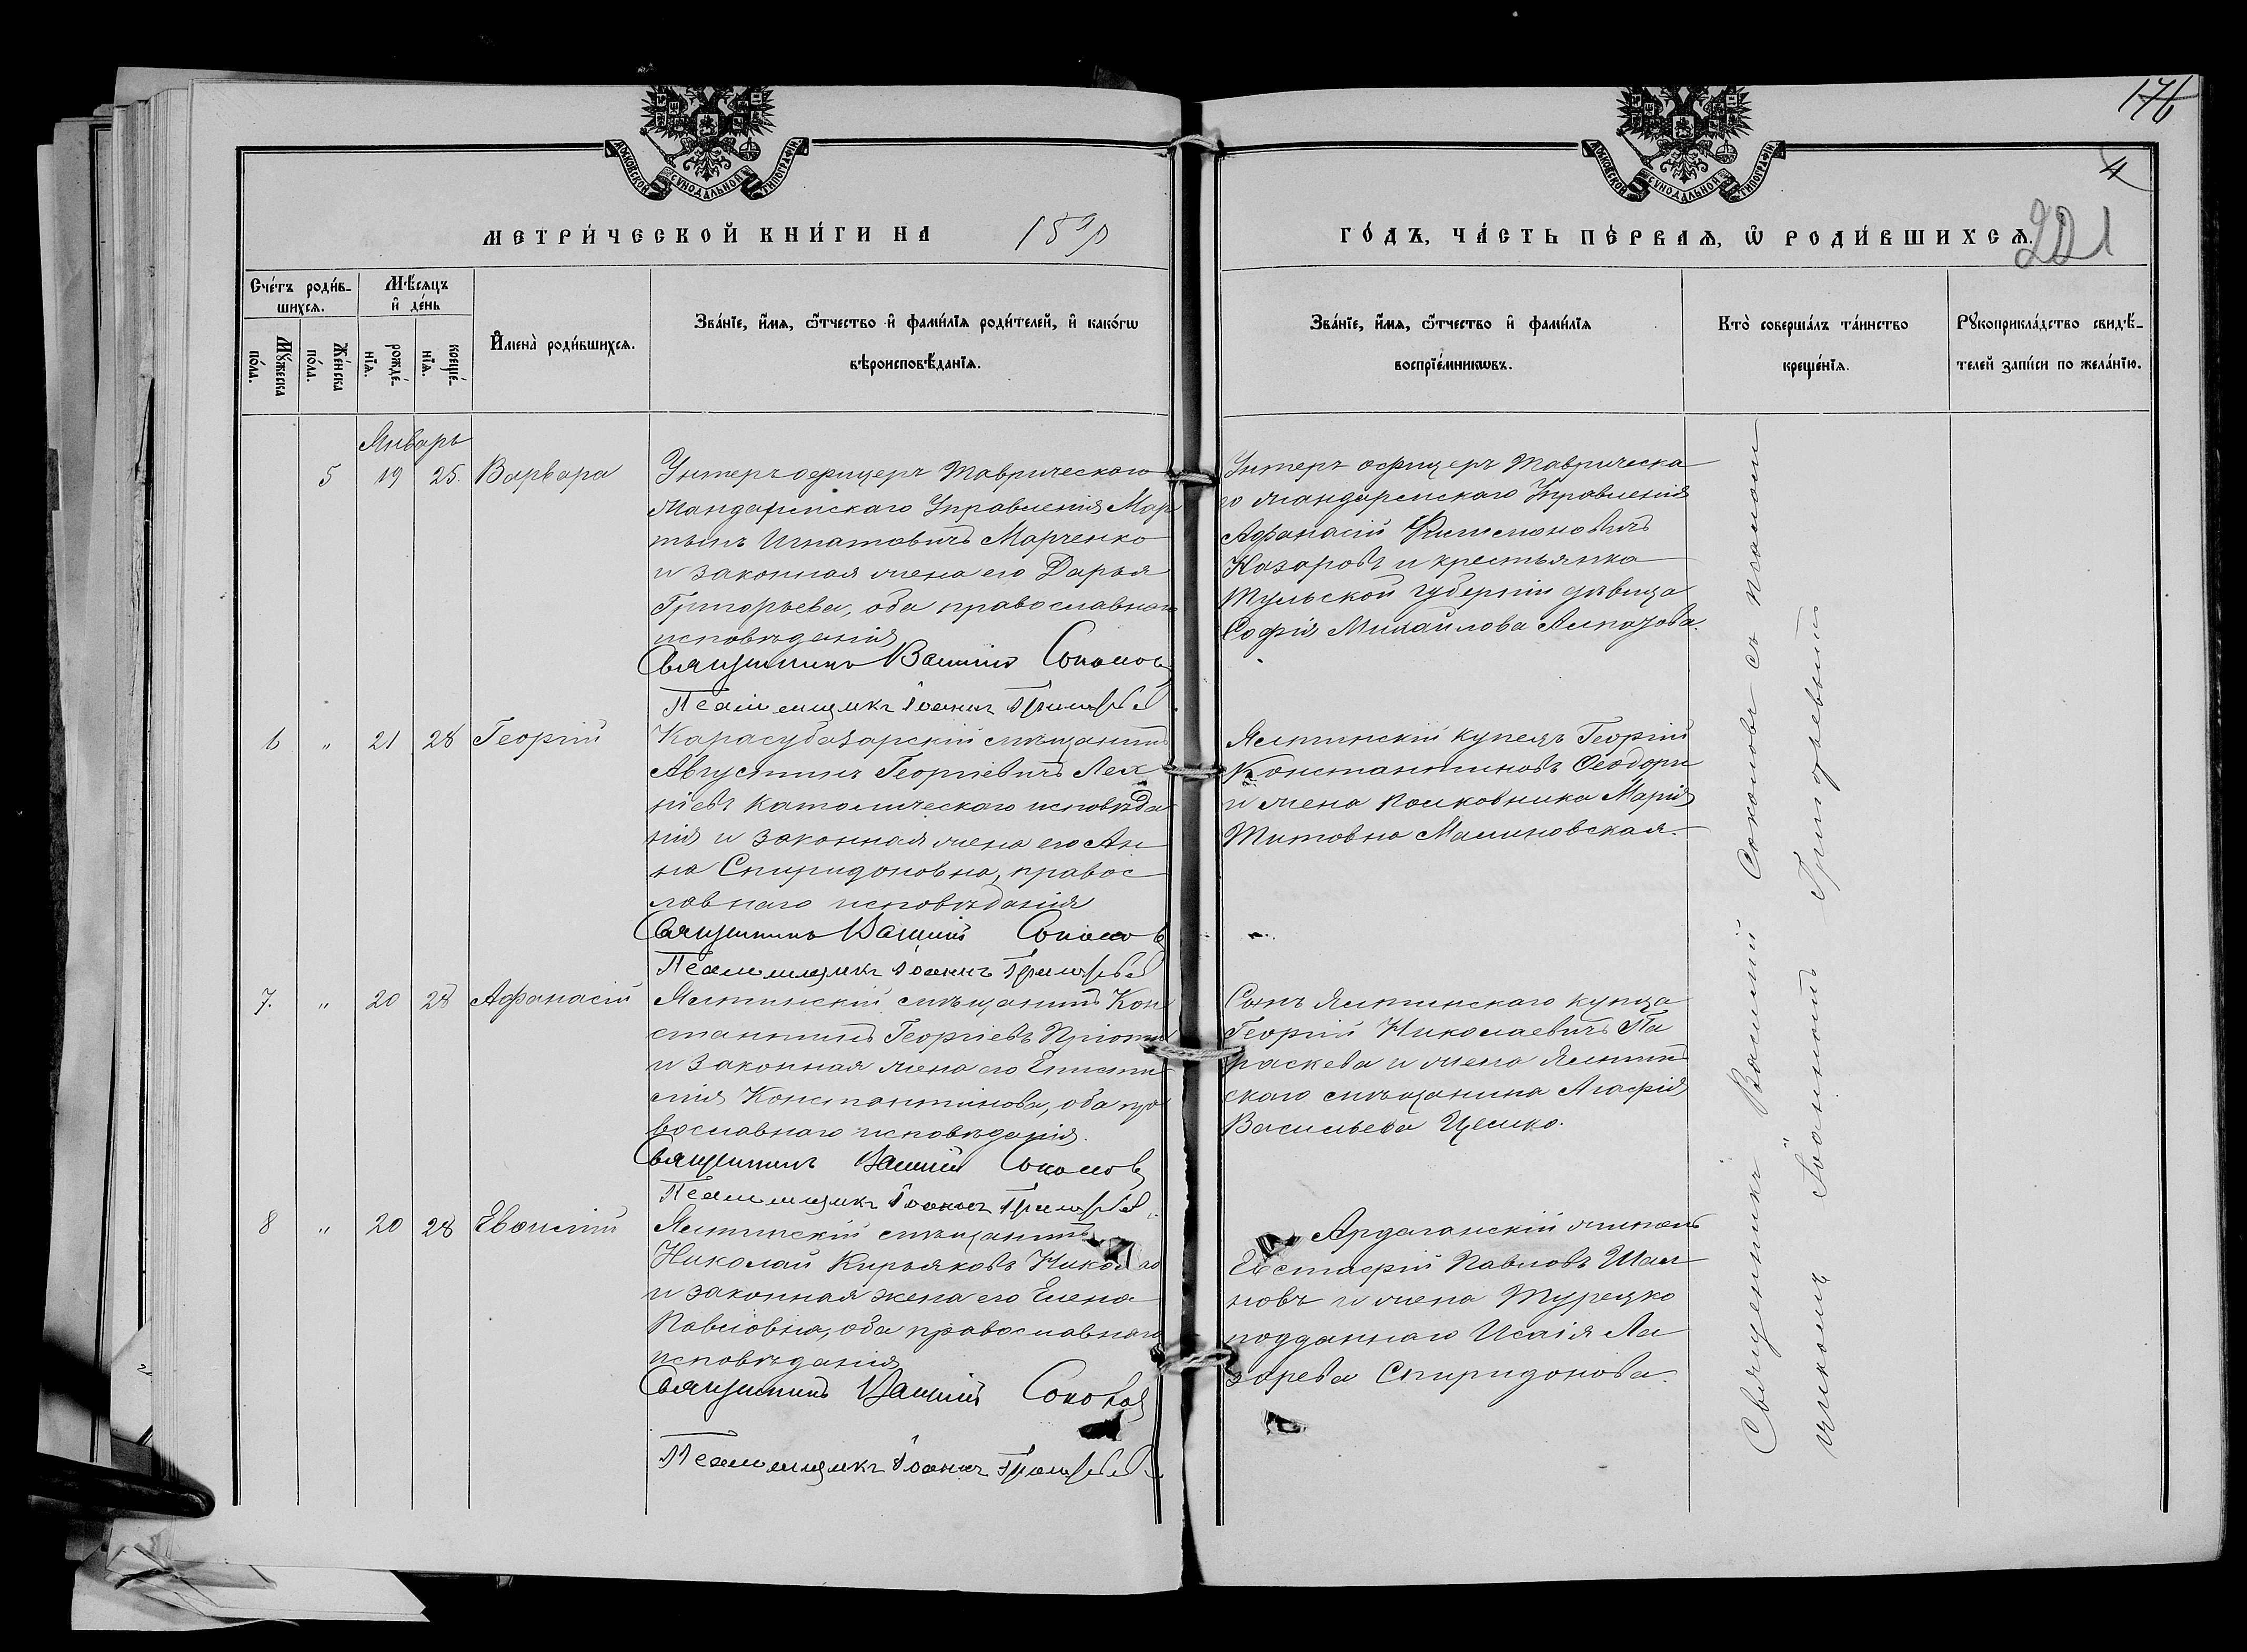 176
4
221
МОСКОВСКОЙ СУНОДАЛЬНОЙ ТИПОГРАФІИ
МОСКОВСКОЙ СУНОДАЛЬНОЙ ТИПОГРАФІИ
МЕТРИ́ЧЕСКОЙ КНИ́ГИ НА 1890
ГО́ДЪ, ЧА́СТЬ ПЕ́РВАѦ, Ѡ҆ РОДИ́ВШИХСѦ.
Сче́тъ роди́в-
шихсѧ.
Мꙋ́жеска
по́ла.
Же́нска
по́ла.
Мѣ́сѧцъ
и҆ де́нь
рожде́-
нїѧ.
креще́-
нїѧ.
И҆мена̀ роди́вшихсѧ.
Зва́нїе, и҆́мѧ, ѻ҆́тчество и҆ фами́лїѧ роди́телей, и҆ како́гѡ
вѣроисповѣ́данїѧ.
Зва́нїе, и҆́мѧ, ѻ҆́тчество и҆ фами́лїѧ
воспрїе́мникѡвъ.
Кто̀ соверша́лъ та́инство
креще́нїѧ.
Рꙋкоприкла́дство свидѣ́-
телей за́писи по жела́нїю.
Январь
5 19 25. Варвара
Унтеръ офицеръ Таврическаго
Жандармскаго Управленія Мар
тынъ Игнатовичъ Марченко
и законная жена его Дарья
Григорьева, оба православнаго
исповѣданія
Священникъ Василій Соколовъ
Псаломщикъ Іоаннъ Григорьевъ
Унтеръ офицеръ Таврическа
го жандармскаго Управленія
Афанасій Филимоновичъ
Назаровъ и крестьянка
Тульской губерніи дѣвица
Софія Михайлова Алмазова.
6 " 21 28 Георгій
Карасубазарскій мѣщанинъ
Августинъ Георгіевичъ Лех
ніевъ католическаго исповѣда
нія и законная жена его Ан
на Спиридоновна, правос
лавнаго исповѣданія
Священникъ Василій Соколовъ
Псаломщикъ Іоаннъ Григорьевъ
Ялтинскій купецъ Георгій
Константиновъ Феодори
и жена полковника Марія
Титовна Малиновская.
7. " 20 28 Афанасій
Ялтинскій мѣщанинъ Кон
стантинъ Георгіевъ
и законная жена его Еписти
мія Константинова, оба пра
вославнаго исповѣданія.
Священникъ Василій Соколовъ
Псаломщикъ Іоаннъ Григорьевъ
Сынъ Ялтинскаго купца
Георгій Николаевичъ Па
раскева и жена Ялтин
скаго мѣщанина Агафія
Васильева Цемко.
8 " 20 28 Евѳимій
Ялтинскій мѣщанинъ
Николай Кирьяковъ
и законная жена его Елена
Павловна, оба православнаго
исповѣданія
Священникъ Василій Соколовъ
Псаломщикъ Іоаннъ Григорьевъ
Ардаганскій житель
Евстафій Павловъ Шал
новъ и жена Турецко
подданнаго Исаія Ла
зарева Спиридонова.
Священникъ Василій Соколовъ съ псалом
щикомъ Іоанномъ Григорьевымъ